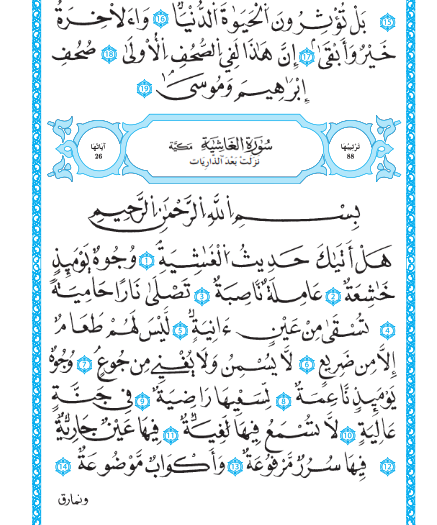 15 بَلْ تُوثِرُونَ اَلْحَيَوٰةَ اَلدُّنْيَا 16 وَالَاخِرَةُ
خَيْرٌ وَأَبْقَىٰ 17 إِنَّ هَٰذَا لَفِي اِلصُّحُفِ اِلُاولَىٰ 18 صُحُفِ
إِبْرَٰهِيمَ وَمُوسَىٰ 19
ترتيبها 88
سُورَةُ الغَاشِيَةِ مَكيّة
آياتها 26
نزلت بعد الذاريات
بِسْمِ اِللَّهِ اِلرَّحْمَٰنِ اِلرَّحِيمِ
هَلْ أَتَيٰكَ حَدِيثُ اُلْغَٰشِيَةِ 1 وُجُوهٌ يَوْمَئِذٍ
خَٰشِعَةٌ 2 عَامِلَةٌ نَّاصِبَةٌ 3 تَصْلَىٰ نَارًا حَامِيَةً
4 تُسْقَىٰ مِنْ عَيْنٍ ءَانِيَةٍ 5 لَّيْسَ لَهُمْ طَعَامٌ
اِلَّا مِن ضَرِيعٍ 6 لَّا يُسْمِنُ وَلَا يُغْنِي مِن جُوعٍ 7 وُجُوهٌ
يَوْمَئِذٍ نَّاعِمَةٌ 8 لِّسَعْيِهَا رَاضِيَةٌ 9 فِي جَنَّةٍ
عَالِيَةٍ 10 لَّا تُسْمَعُ فِيهَا لَٰغِيَةٌ 11 فِيهَا عَيْنٌ جَارِيَةٌ
12 فِيهَا سُرُرٌ مَّرْفُوعَةٌ 13 وَأَكْوَابٌ مَّوْضُوعَةٌ 14
ونمارق